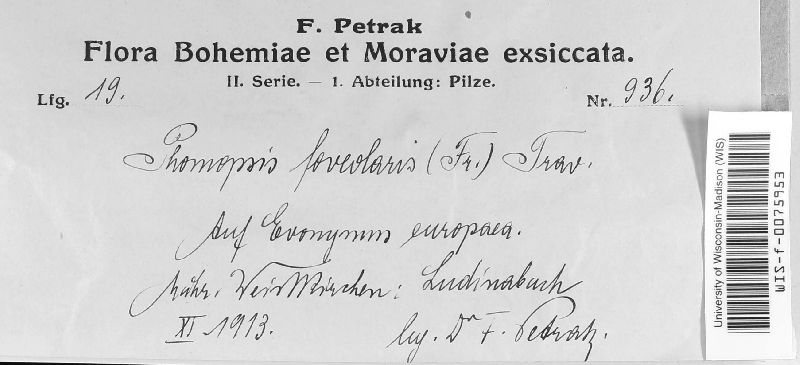 F. Petrak
Flora Bohemiae et Moraviae exsiccata.
II. Serie. — 1. Abteilung: Pilze.
Lfg. 19.
Nr. 936.
Phomopsis foveolaris (Fr.) Trav.
Auf Evonymus europaea.
Mähr. Weisskirchen: Ludinabach
XI 1913.
leg. Dr F. Petrak.
University of Wisconsin-Madison (WIS)
WIS-f-0075953